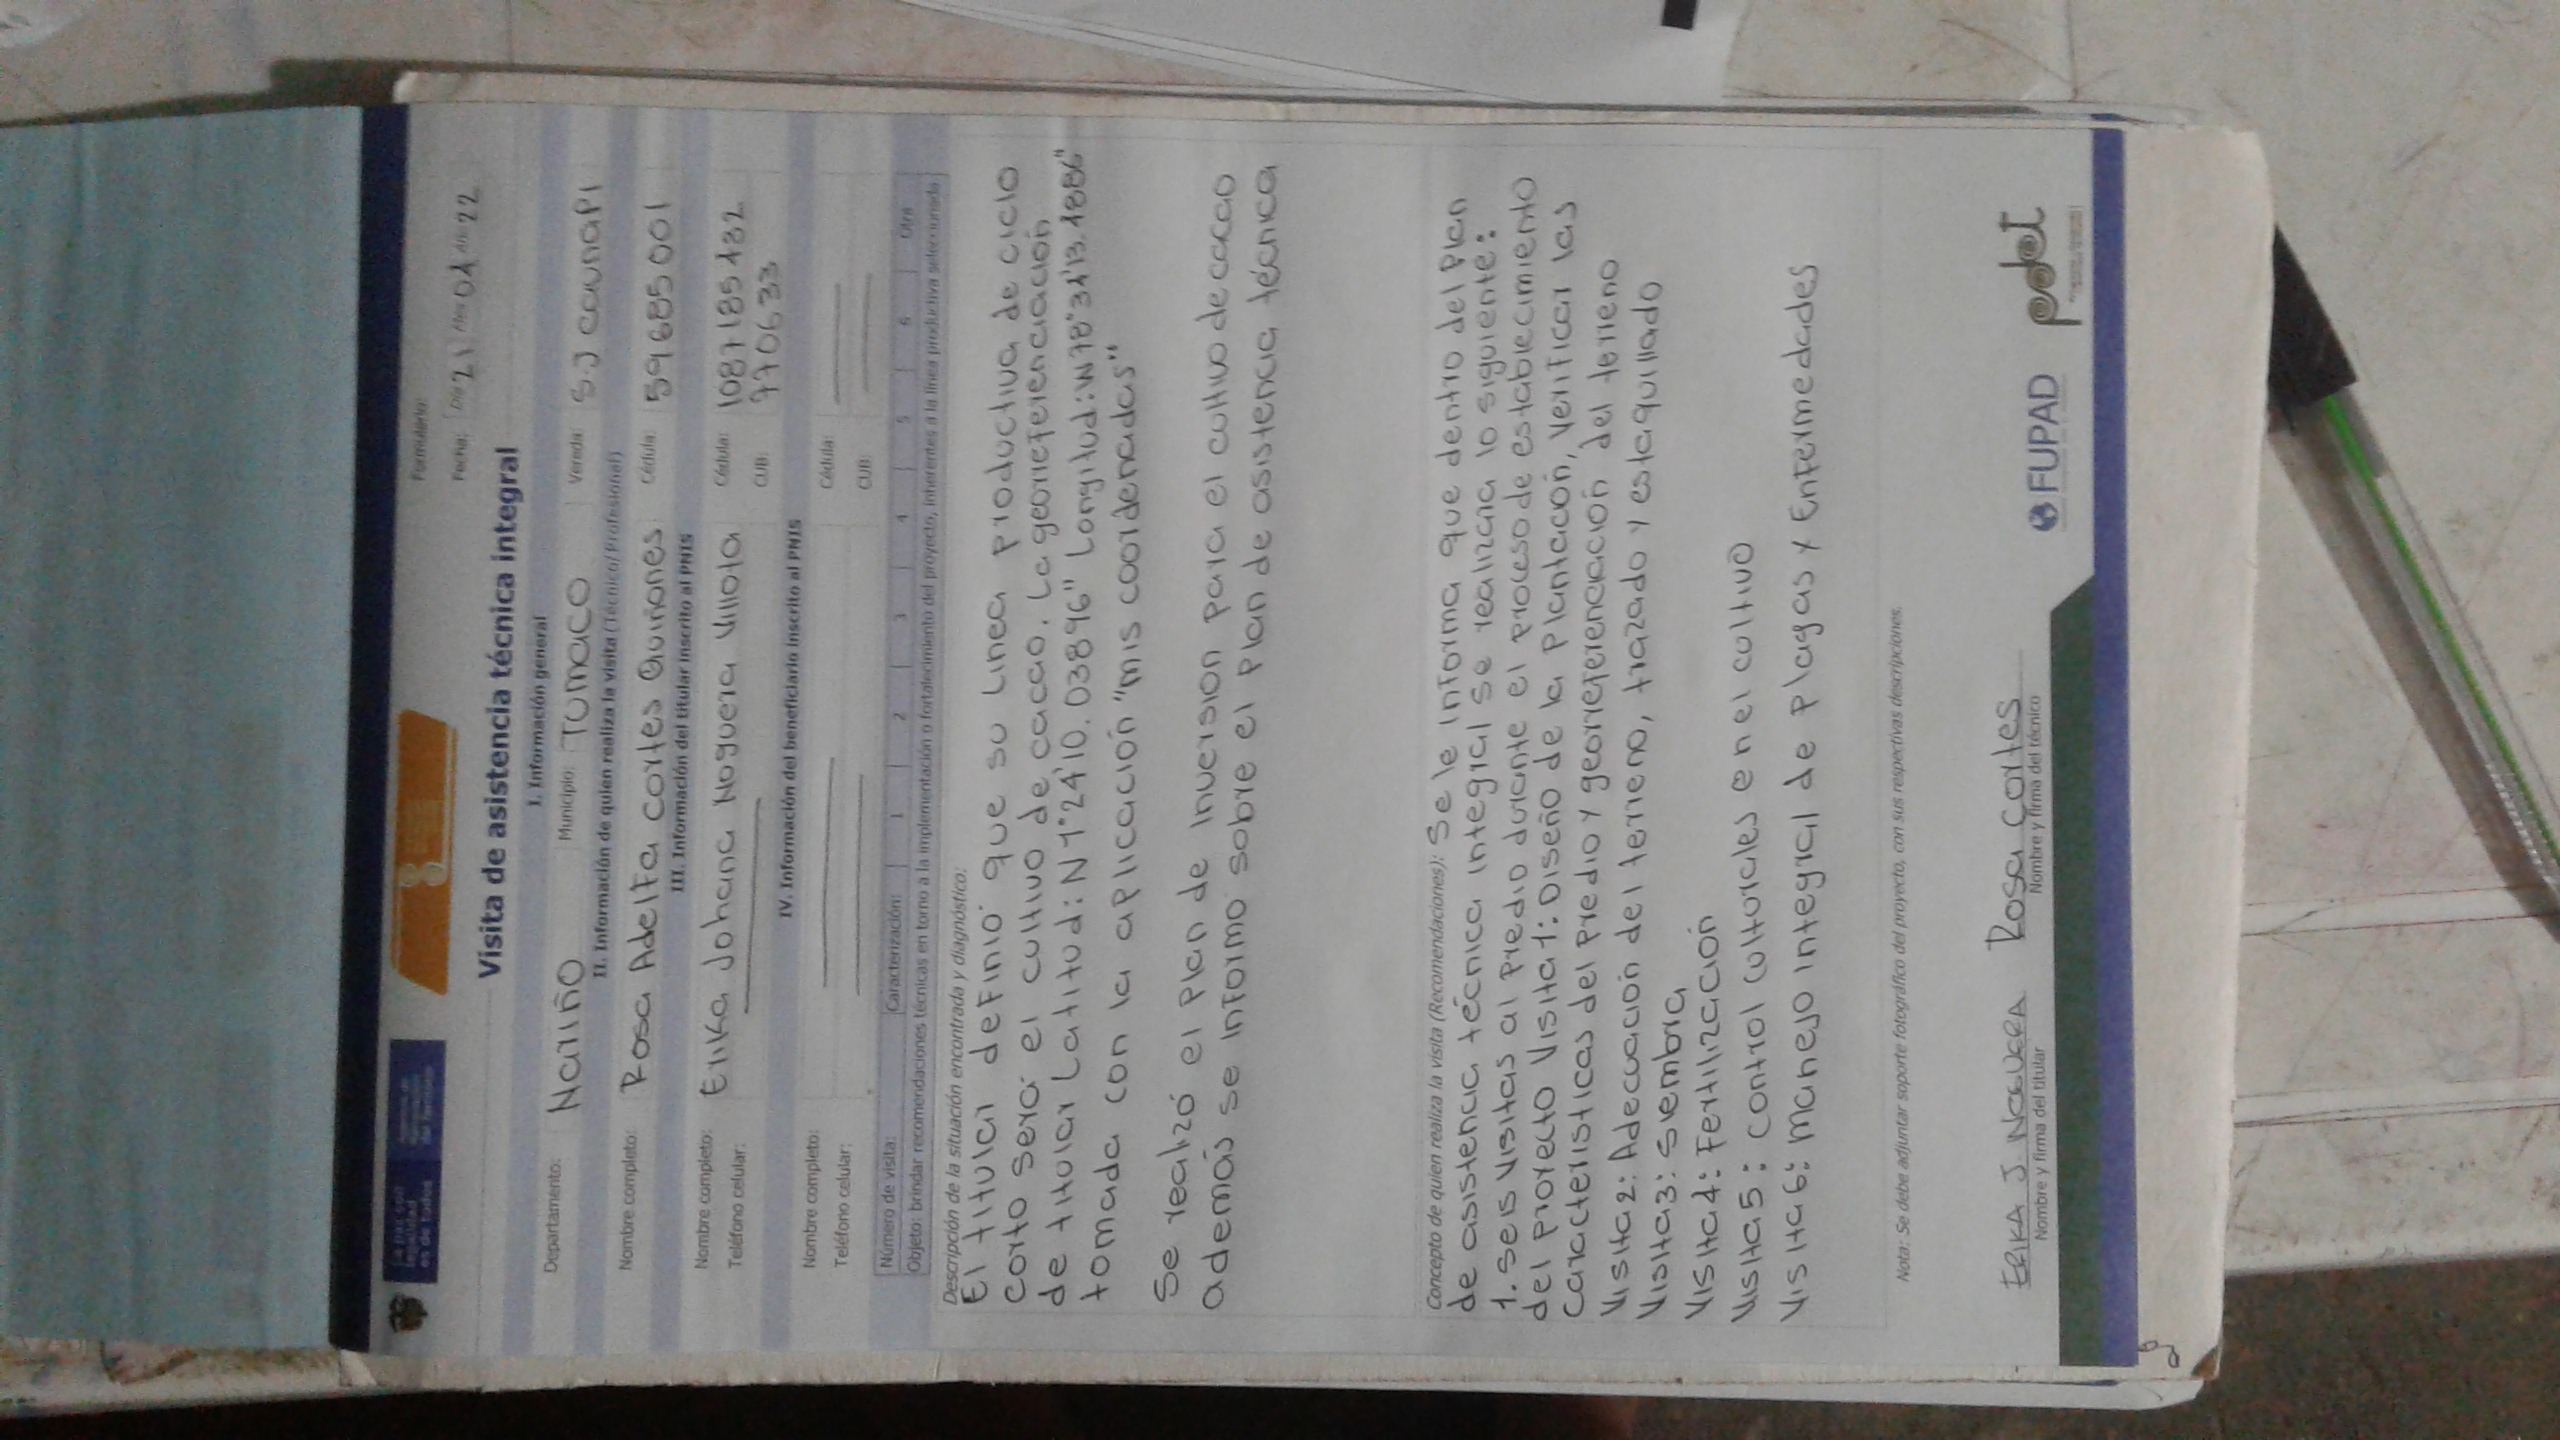 Formulario:
Fecha: Día 21 Mes 04 Año 22
Visita de asistencia técnica integral
I. Información general
Departamento: Nariño Municipio: TUMACO Vereda: S.J caunapi
II. Información de quien realiza la visita (Técnico/Profesional)
Nombre completo: Rosa Adelfa cortes Quiñones Cédula: 59685001
III. Información del titular inscrito al PNIS
Nombre completo: Erika Johana Noguera Villota Cédula: 1087185482
Teléfono celular: CUB: 770633
IV. Información del beneficiario inscrito al PNIS
Nombre completo: Cédula:
Teléfono celular: CUB:
Número de visita: Caracterización: 1 2 3 4 5 6 Otra
Objeto: brindar recomendaciones técnicas en torno a la implementación o fortalecimiento del proyecto, inherentes a la línea productiva seleccionada
Descripción de la situación encontrada y diagnóstico:
El titular definió que su Linea productiva de ciclo
corto será el cultivo de cacao. La georreferenciación
de titular Latitud: N 1°24'10.03896" Longitud: W 78°34'13.4886"
tomada con la aplicación "mis coordenadas"
Se realizó el plan de inversion para el cultivo de cacao
además se informó sobre el plan de asistencia técnica
Concepto de quien realiza la visita (Recomendaciones): Se le informa que dentro del plan
de asistencia técnica integral se realizara lo siguiente:
1. seis visitas al predio durante el proceso de establecimiento
del proyecto visita 1: Diseño de la plantación, verificar las
características del predio y georreferenciación del terreno
Visita 2: Adecuación del terreno, trazado y estaquillado
Visita 3: siembra
Visita 4: Fertilización
Visita 5: control culturales en el cultivo
Visita 6: manejo integral de plagas y Enfermedades
Nota: Se debe adjuntar soporte fotográfico del proyecto, con sus respectivas descripciones.
ERIKA J NOGUERA Rosa cortes
Nombre y firma del titular Nombre y firma del técnico
FUPAD pdet